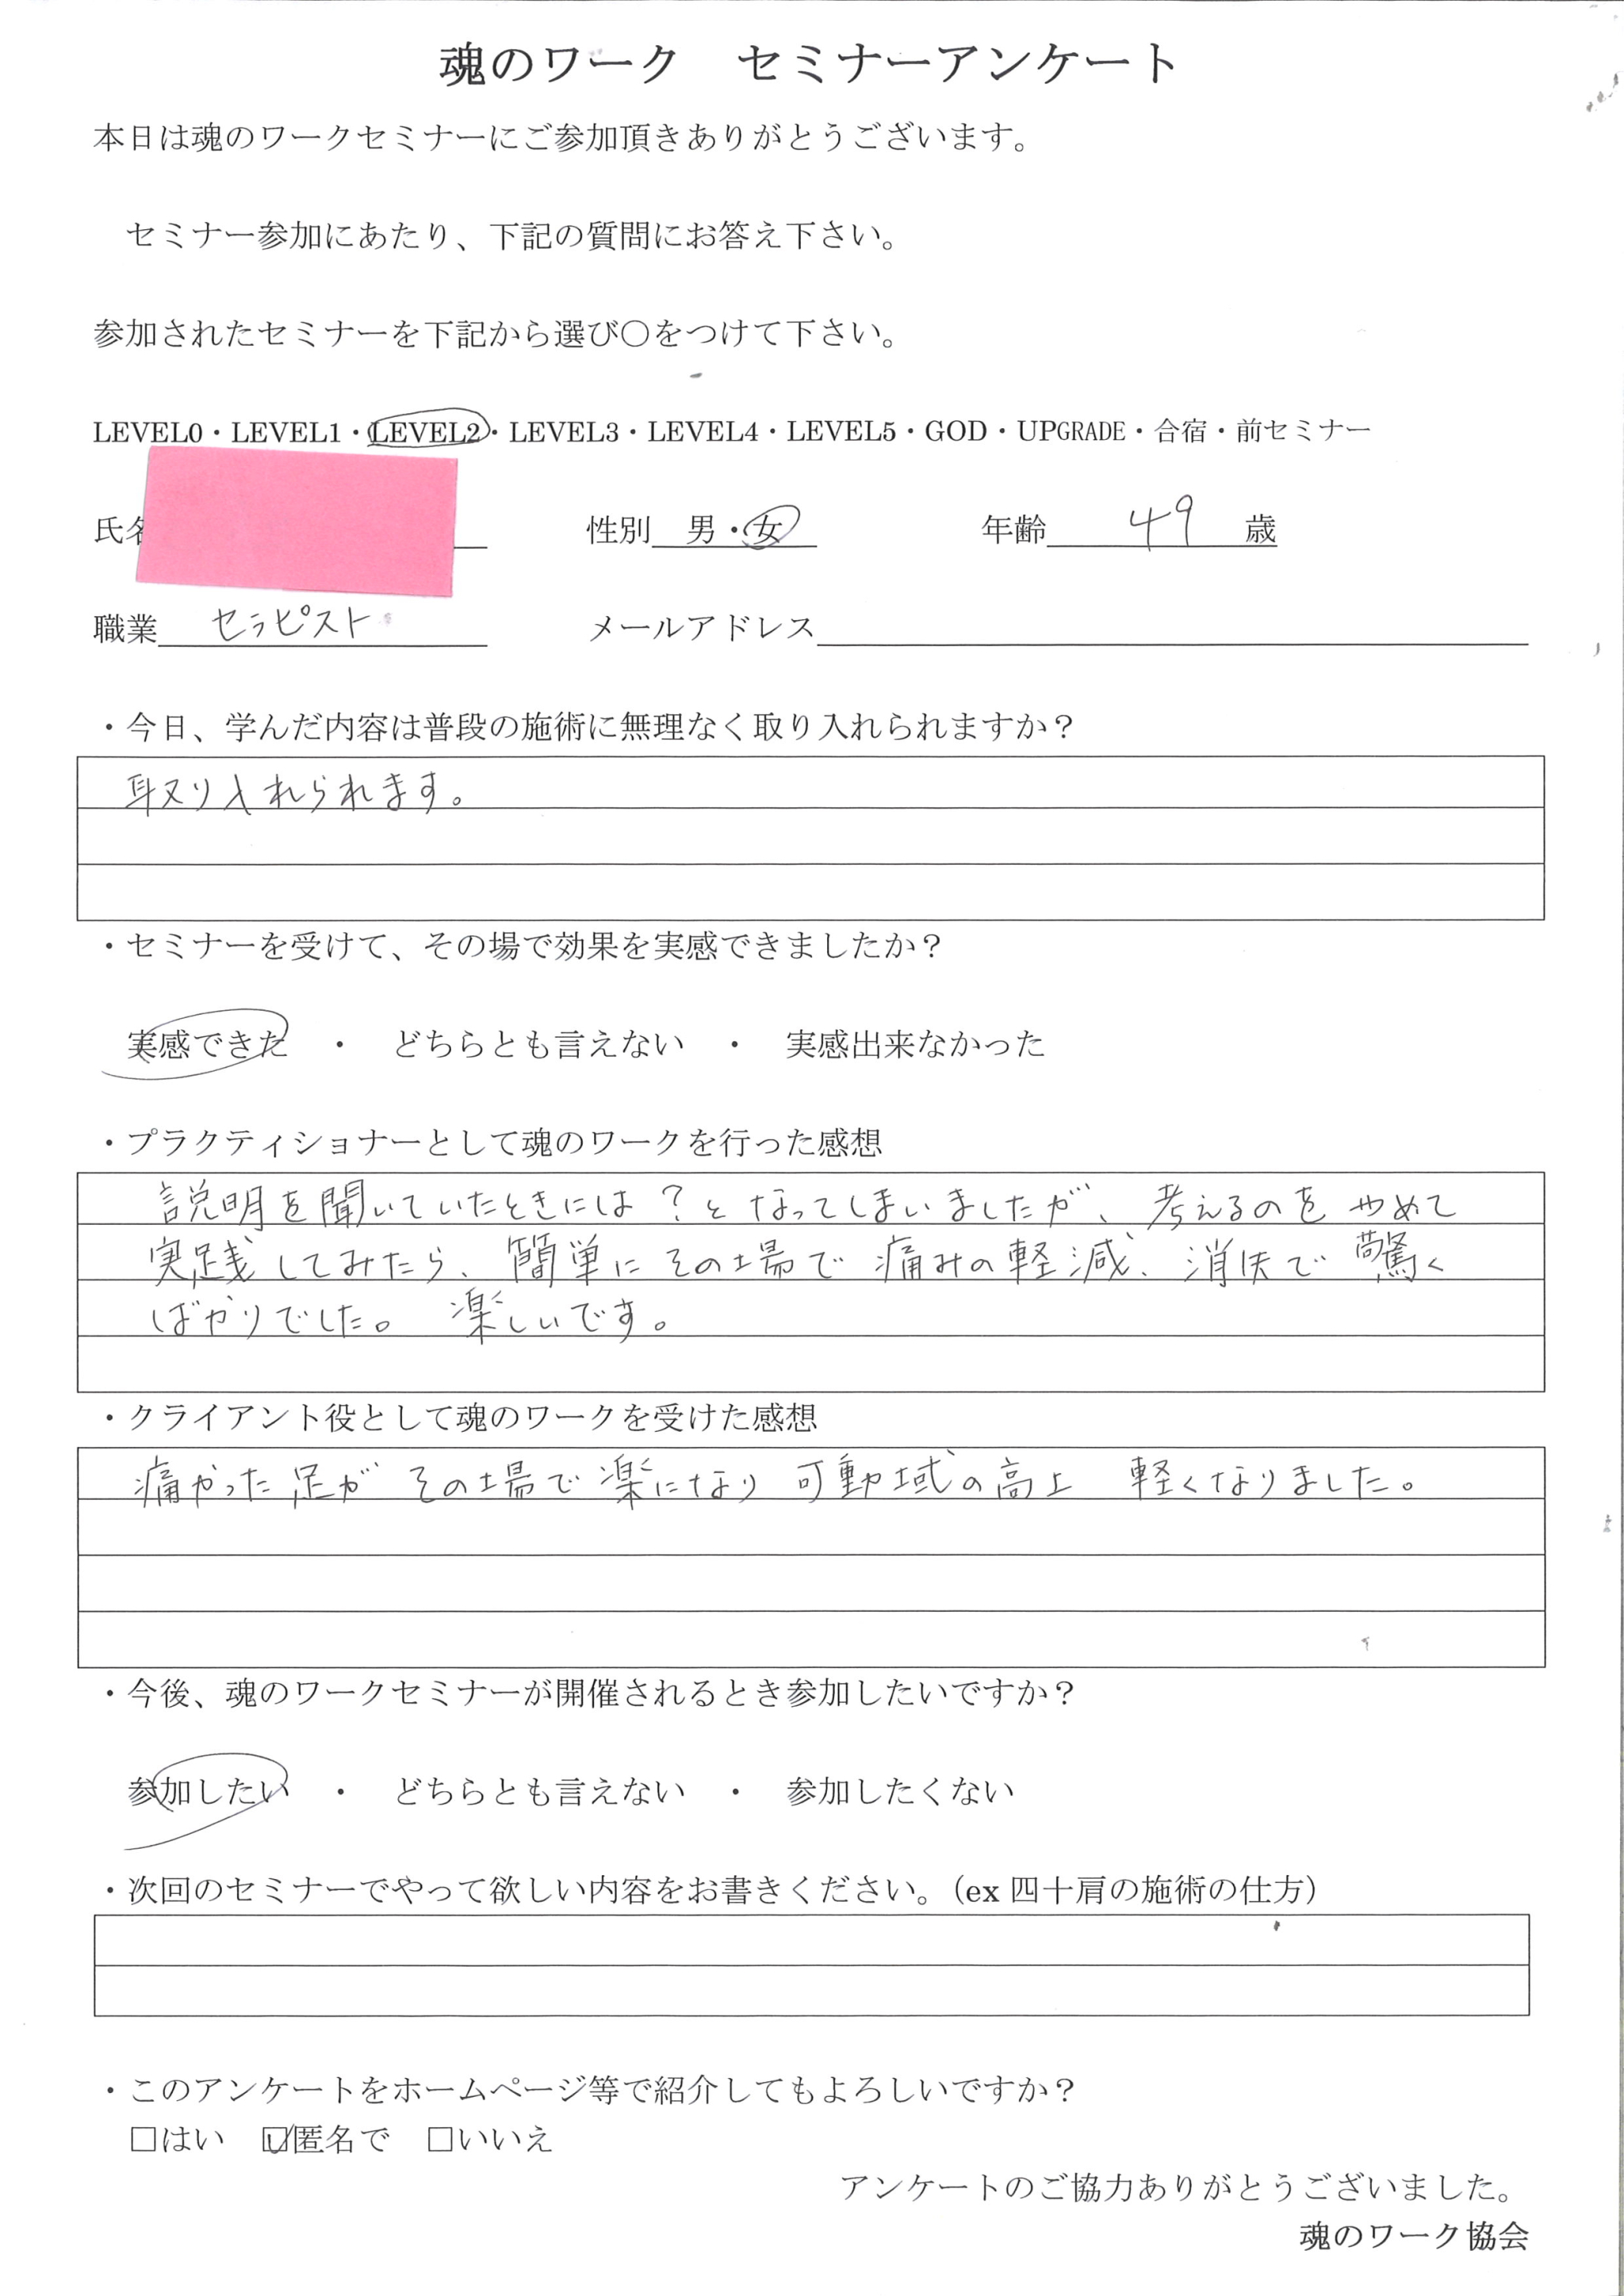 魂のワーク　セミナーアンケート
本日は魂のワークセミナーにご参加頂きありがとうございます。
セミナー参加にあたり、下記の質問にお答え下さい。
参加されたセミナーを下記から選び〇をつけて下さい。
LEVEL0・LEVEL1・LEVEL2・LEVEL3・LEVEL4・LEVEL5・GOD・UPGRADE・合宿・前セミナー
氏名　性別　男・女　年齢　49　歳
職業　セラピスト　メールアドレス
・今日、学んだ内容は普段の施術に無理なく取り入れられますか？
取り入れられます。
・セミナーを受けて、その場で効果を実感できましたか？
実感できた　・　どちらとも言えない　・　実感出来なかった
・プラクティショナーとして魂のワークを行った感想
説明を聞いていたときには？となってしまいましたが、考えるのをやめて
実践してみたら、簡単にその場で痛みの軽減、消失で驚く
ばかりでした。　楽しいです。
・クライアント役として魂のワークを受けた感想
痛かった足がその場で楽になり可動域の高上　軽くなりました。
・今後、魂のワークセミナーが開催されるとき参加したいですか？
参加したい　・　どちらとも言えない　・　参加したくない
・次回のセミナーでやって欲しい内容をお書きください。（ex 四十肩の施術の仕方）
・このアンケートをホームページ等で紹介してもよろしいですか？
□はい　☑匿名で　□いいえ
アンケートのご協力ありがとうございました。
魂のワーク協会